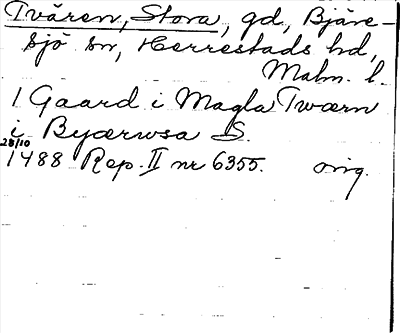 Tvären, Stora, gd, Bjäre-
sjö sn, Herrestads hd,
Malm. l.
1 Gaard i Magla Tværn
i Byærwsa S.
28/10
1488 Rep. II nr 6355. orig.